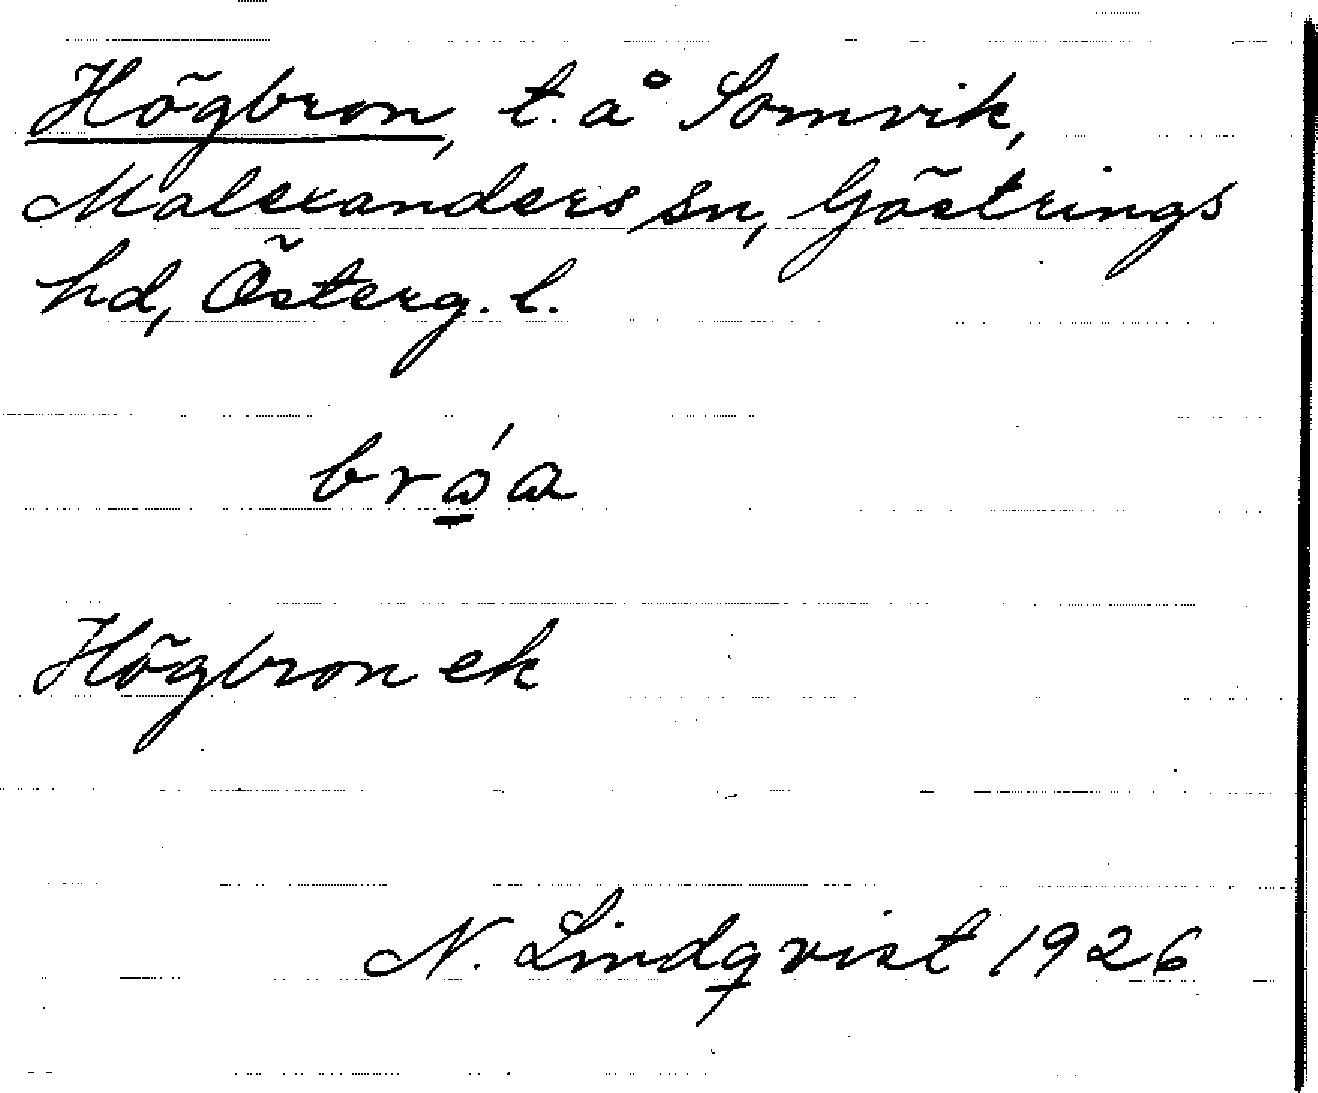 Högbron, t. å Somvik,
Malexanders sn, Göstrings
hd, Österg. l.
Högbron ek
N. Lindqvist 1926